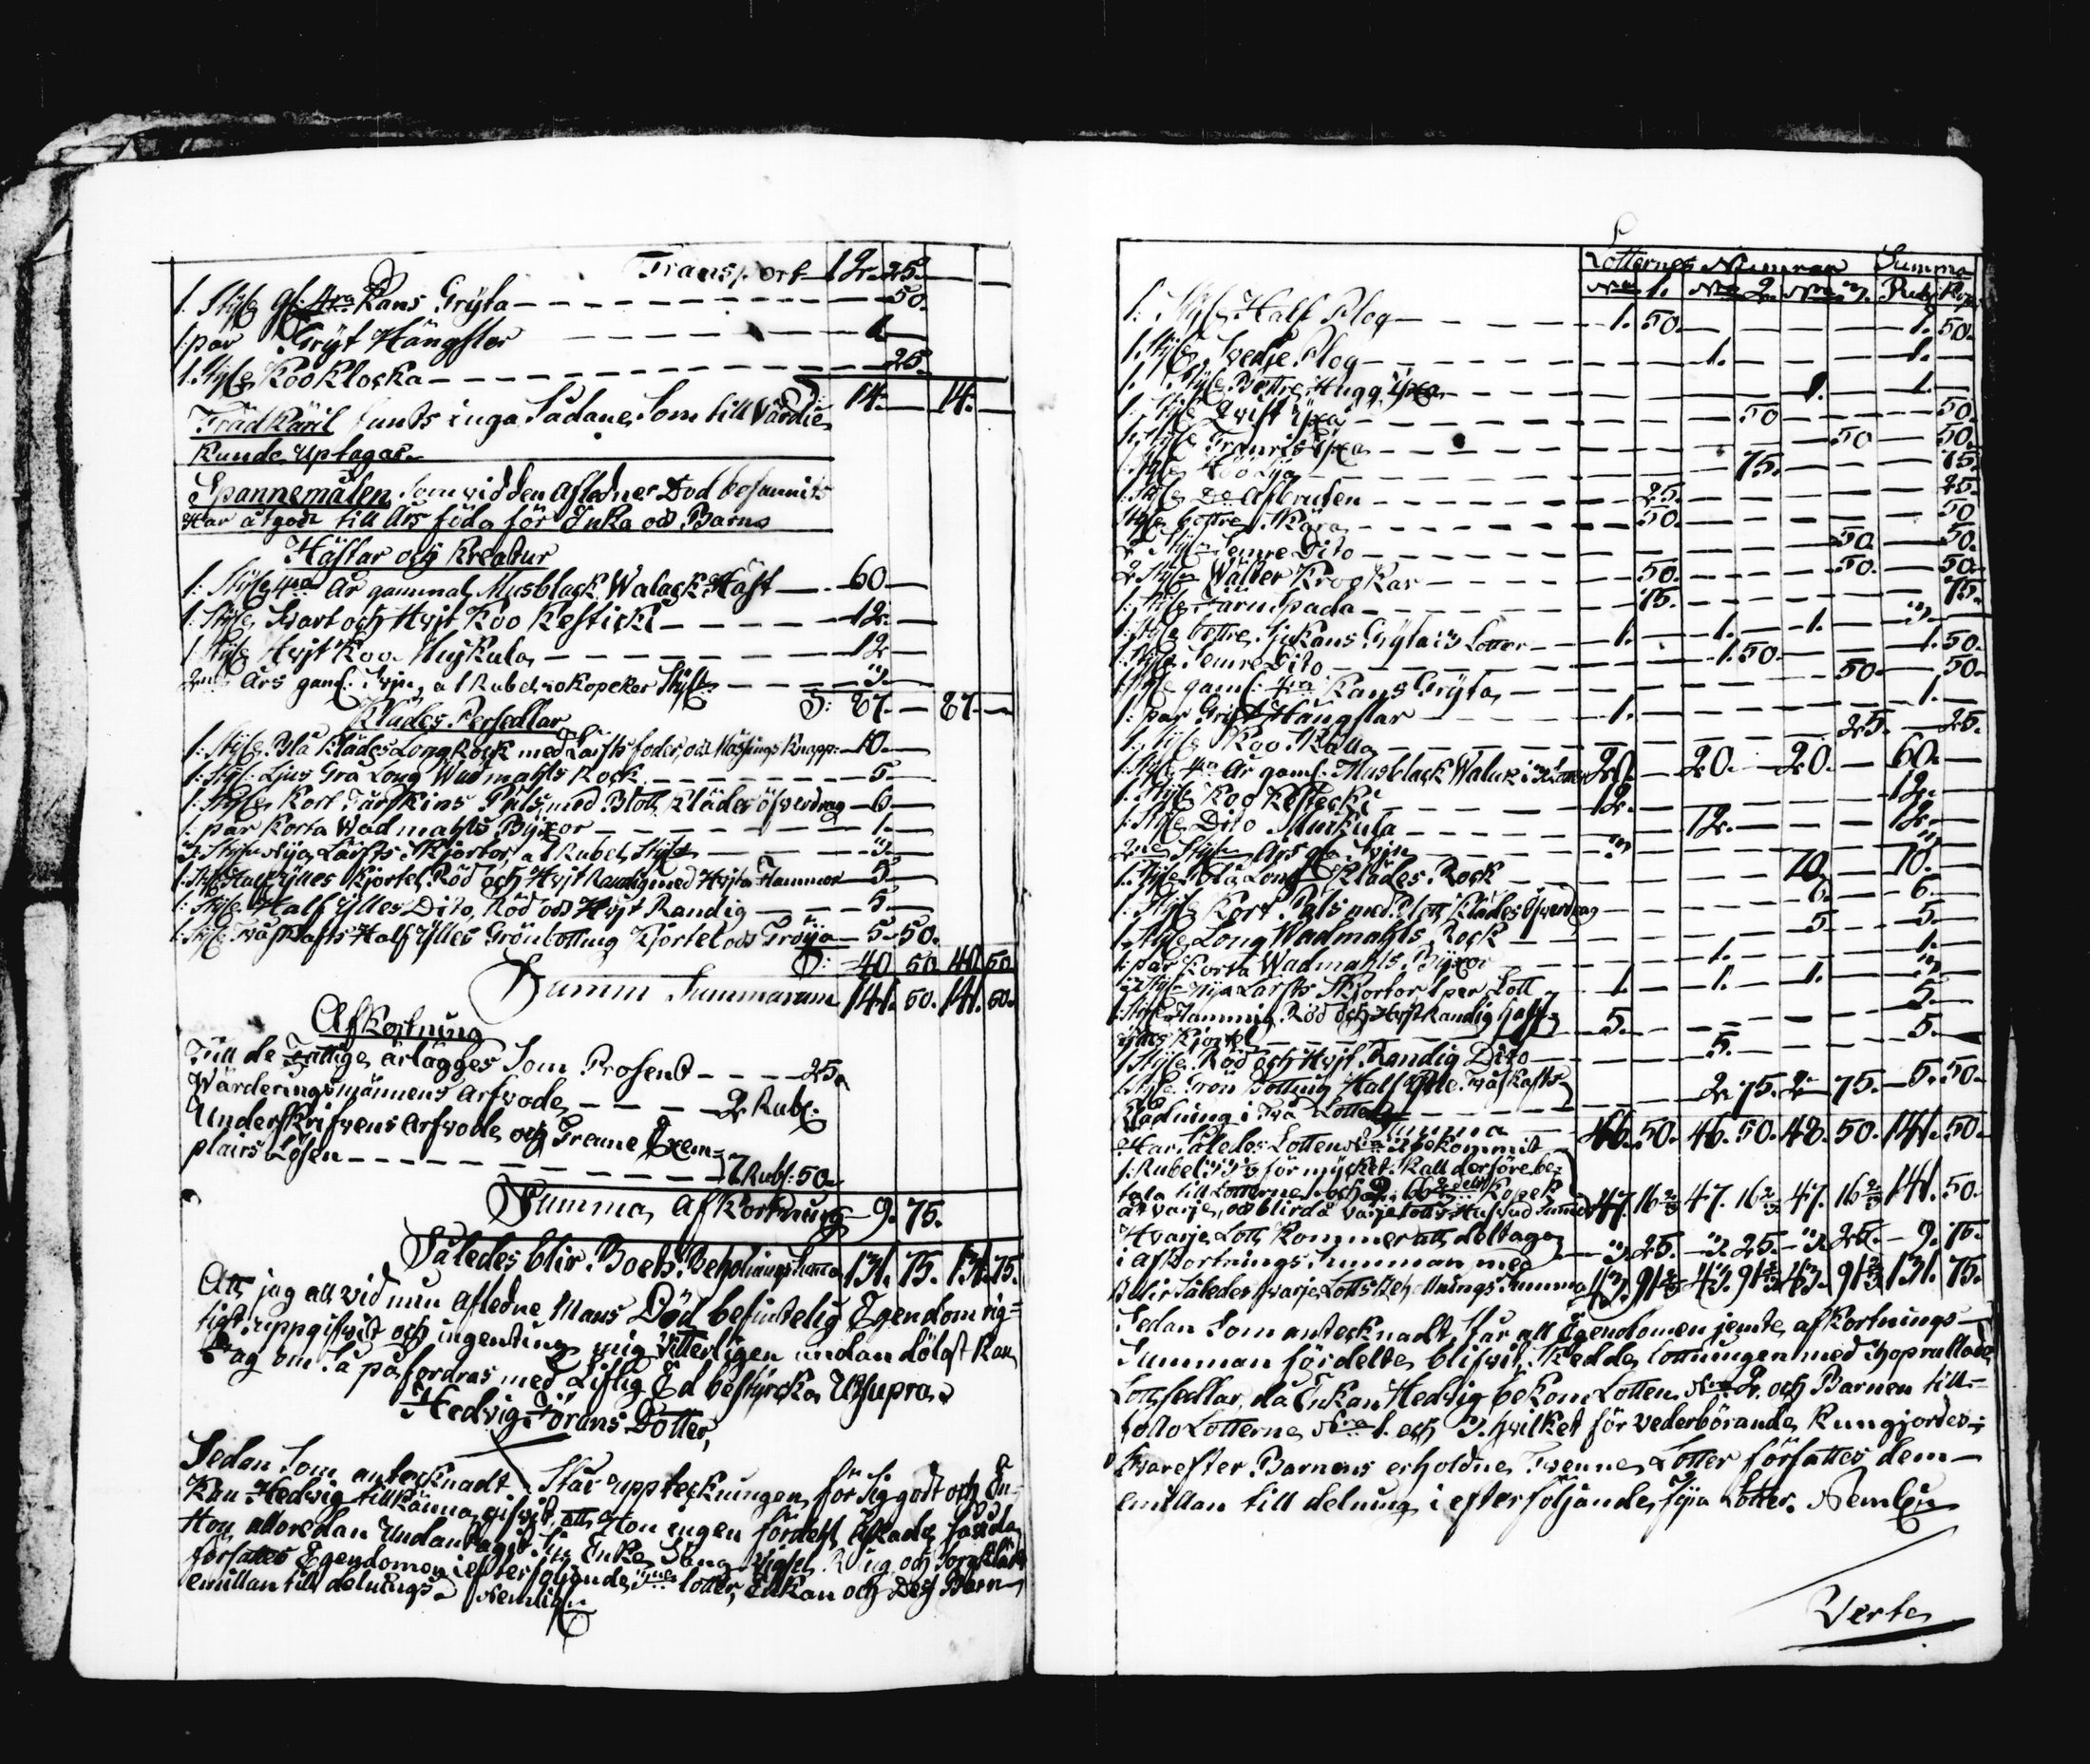 Transport 12. 25.
1. Stÿck gl: 4ra Kans Grÿta 50.
1 par Grÿt Hängslor 1
1. Stÿck Koo Klocka 25.
S: 14. 14.
Träd Käril funts inga Sådane Som till Värdie
Kunde uptagas
Spannemålen Som vid den Aflednes Död befunnits
Har åtgådt till Års föda för Enka och Barns
Hästar och Kreatur
1. Stÿck 4ra År gammal Musblack Walack Häst 60
1. Stÿck Svart och Hvjt Koo Kesticki 12
1. Stÿck Hvjt Koo Mujkula 12
2ne Års gaml. Svjn, a 1 Rubel 50 Kopeker Stÿck 3.
S: 87. 87.
Klädes Persedlar
1. Stÿck Blå Klädes Long Rock med Lärfts foder, och Mässings Knapp: 10.
1. Stÿck Ljus Grå Long Wadmahls Rock 5.
1. Stÿck Kort Fårskins Päls med Blått Klädes öfverdrag 6
1. par Korta Wadmahls Bÿxor 1.
3. Stÿck Nÿa Lärfts Skjortor, a 1 Rubel Stÿck 3.
1. Stÿck Half ÿlles Kjortel Röd och Hvjt Randig med Hvjta Flammor 5
1. Stÿck Half ÿlles Dito, Röd och Hvjt Randig 5.
1. Stÿck Tvåskafts Half ÿlles Grönbotting Kjortel och Tröija 5. 50.
S: 40 50 40. 50
Summa Summarum 141. 50. 141. 50.
Afkortning
Till de Fattige ärlägges Som Prosent 25.
Wärderingsmännens Arfvode 2 Rubl:
Underskrifvens Arfvode och Trenne Exem=
plairs Lösen 7 Rubl: 50
Summa Afkortning 9. 75.
Således blir Boets Behollnings Summa 131. 75. 131. 75.
Att jag all vid min Afledne Mans Död befintelig Egendom rig=
tigt uppgifvit och ingenting mig Vitterligen undan dölgt Kan
Jag om Så påfordras med Liflig Ed bestÿrcka Utsupra
Hedvig Jörans Dotter,
Sedan Som antecknadt Står uppteckningen för Sig gådt och En=
kan Hedvig tillkänna gifvit att Hon ingen fördehl
Hon alloredan Undantaget Sin Enke Säng Vigsel Ring och Sorgkläde
författes Egendomen i efterföljande 3ne lotter, Enkan och Des Barn
emillan till delnings. Nemligen
Lotternes Numrar Summa
No 1. No 2. No 3. Rub. Kop.
1. Stÿck Half Plog 1. 50. 1. 50.
1. Stÿck Svedje Plog 1. 1.
1. Stÿck Bettre Hugg ÿxa 1. 1.
1. Stÿck Qvist ÿxa 50 50.
1. Stÿck ÿxa 50 50.
1. Stÿck Höö Lija 75. 75.
1. Stÿck Do Afbruten 25. 25.
Stÿck bettre Skära 50. 50
2 Stÿck Semre Dito 50. 50.
2 Stÿck Wälter Krockar 50. 50. 50.
1. Stÿck Järn Spada 75. 75.
1. Stÿck bettre Sju Kans Grÿta i 3 Lotter 1. 1. 1. 3.
1. Stÿck Semre Dito 1. 50. 1. 50.
1. Stÿck gaml. 4ra Kans Grÿta 50. 50.
1. par Grÿt Hängslar 1. 1.
1. Stÿck Koo Skälla 25. 25.
1. Stÿck 4ra År gaml. Musblack Walack i 3 Lotter 20. 20. 20. 60.
1. Stÿck Koo Kestecki 12. 12.
1. Stÿck Dito Muikula 12. 12.
2ne Stÿck Års gla Svjn 3 3
1. Stÿck Blå Long Klädes Rock 10. 10.
1. Stÿck Kort Päls med Blått Klädes öfverdrag 6. 6.
1. Stÿck Long Wadmahls Rock 5 5.
1. par Korta Wadmahls Bÿxor 1. 1.
3. Stÿck Nÿa Lärfts Skjortor 1 per Lott 1. 1. 1. 3.
1. Stÿck Flammig Röd och Hvjt Randig Half=
ÿlles Kjortel 5. 5.
1. Stÿck Röd och Hvjt Randig Dito 5. 5.
1. Stÿck Grön Botting Half ÿlle Tvåskafts
Klädning i Två Lotter 2 75. 2 75. 5. 50.
Summa 46. 50. 46. 50. 48. 50. 141. 50.
Har Således Lotten No 3 bekommit
1. Rubel 33 1/3 för mÿcket Skall derföre be=
tala till Lotterne 1 och 2. 66 2/3 delss Kopek
åt varje, och blir då varje Lotts Hufvud Summa 47. 16 2/3 47. 16 2/3 47. 16 2/3 141. 50.
Hvarje Lott Kommer att deltaga
i Afkortnings Summan med 3. 25. 3. 25. 3. 25. 9. 75.
Blir Således hvarje Lotts Behållnings Summa 43. 91 2/3 43. 91 2/3 43. 91 2/3 131. 75.
Sedan Som antecknadt Står all Egendomen jemte afkortnings=
Summan fördelte blifvit, Skedde lottningen med Ihoprullade
Lottsedlar, då Enkan Hedvig bekom Lotten No 2. och Barnen till=
föllo Lotterne No 1. och 3. hvilket för vederbörande Kungjordes,
hvarefter Barnens erholdne Tvenne Lotter författes dem
emillan till delning i efterföljande fÿra Lotter. Nemligen
Verte